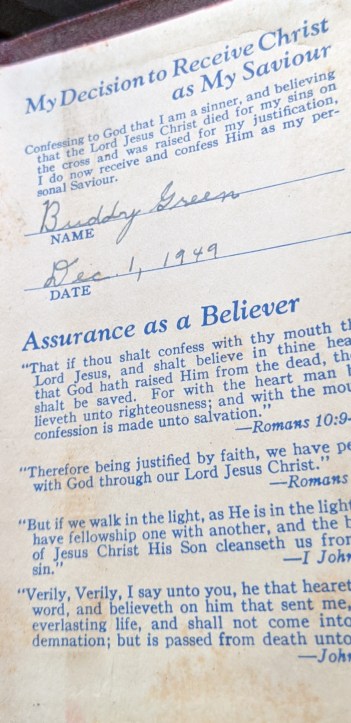 My Decision to Receive Christ
as My Saviour
Confessing to God that I am a sinner, and believing
that the Lord Jesus Christ died for my sins on
the cross and was raised for my justification,
I do now receive and confess Him as my per-
sonal Saviour.
Buddy Green
NAME
Dec. 1, 1949
DATE
Assurance as a Believer
"That if thou shalt confess with thy mouth th
Lord Jesus, and shalt believe in thine hea
that God hath raised Him from the dead, tho
shalt be saved. For with the heart man b
lieveth unto righteousness; and with the mou
confession is made unto salvation."
—Romans 10:9-
"Therefore being justified by faith, we have pe
with God through our Lord Jesus Christ."
—Romans
"But if we walk in the light, as He is in the light
have fellowship one with another, and the b
of Jesus Christ His Son cleanseth us from
sin."
—I John
"Verily, Verily, I say unto you, he that heareth
word, and believeth on him that sent me,
everlasting life, and shall not come into
demnation; but is passed from death unto
—John